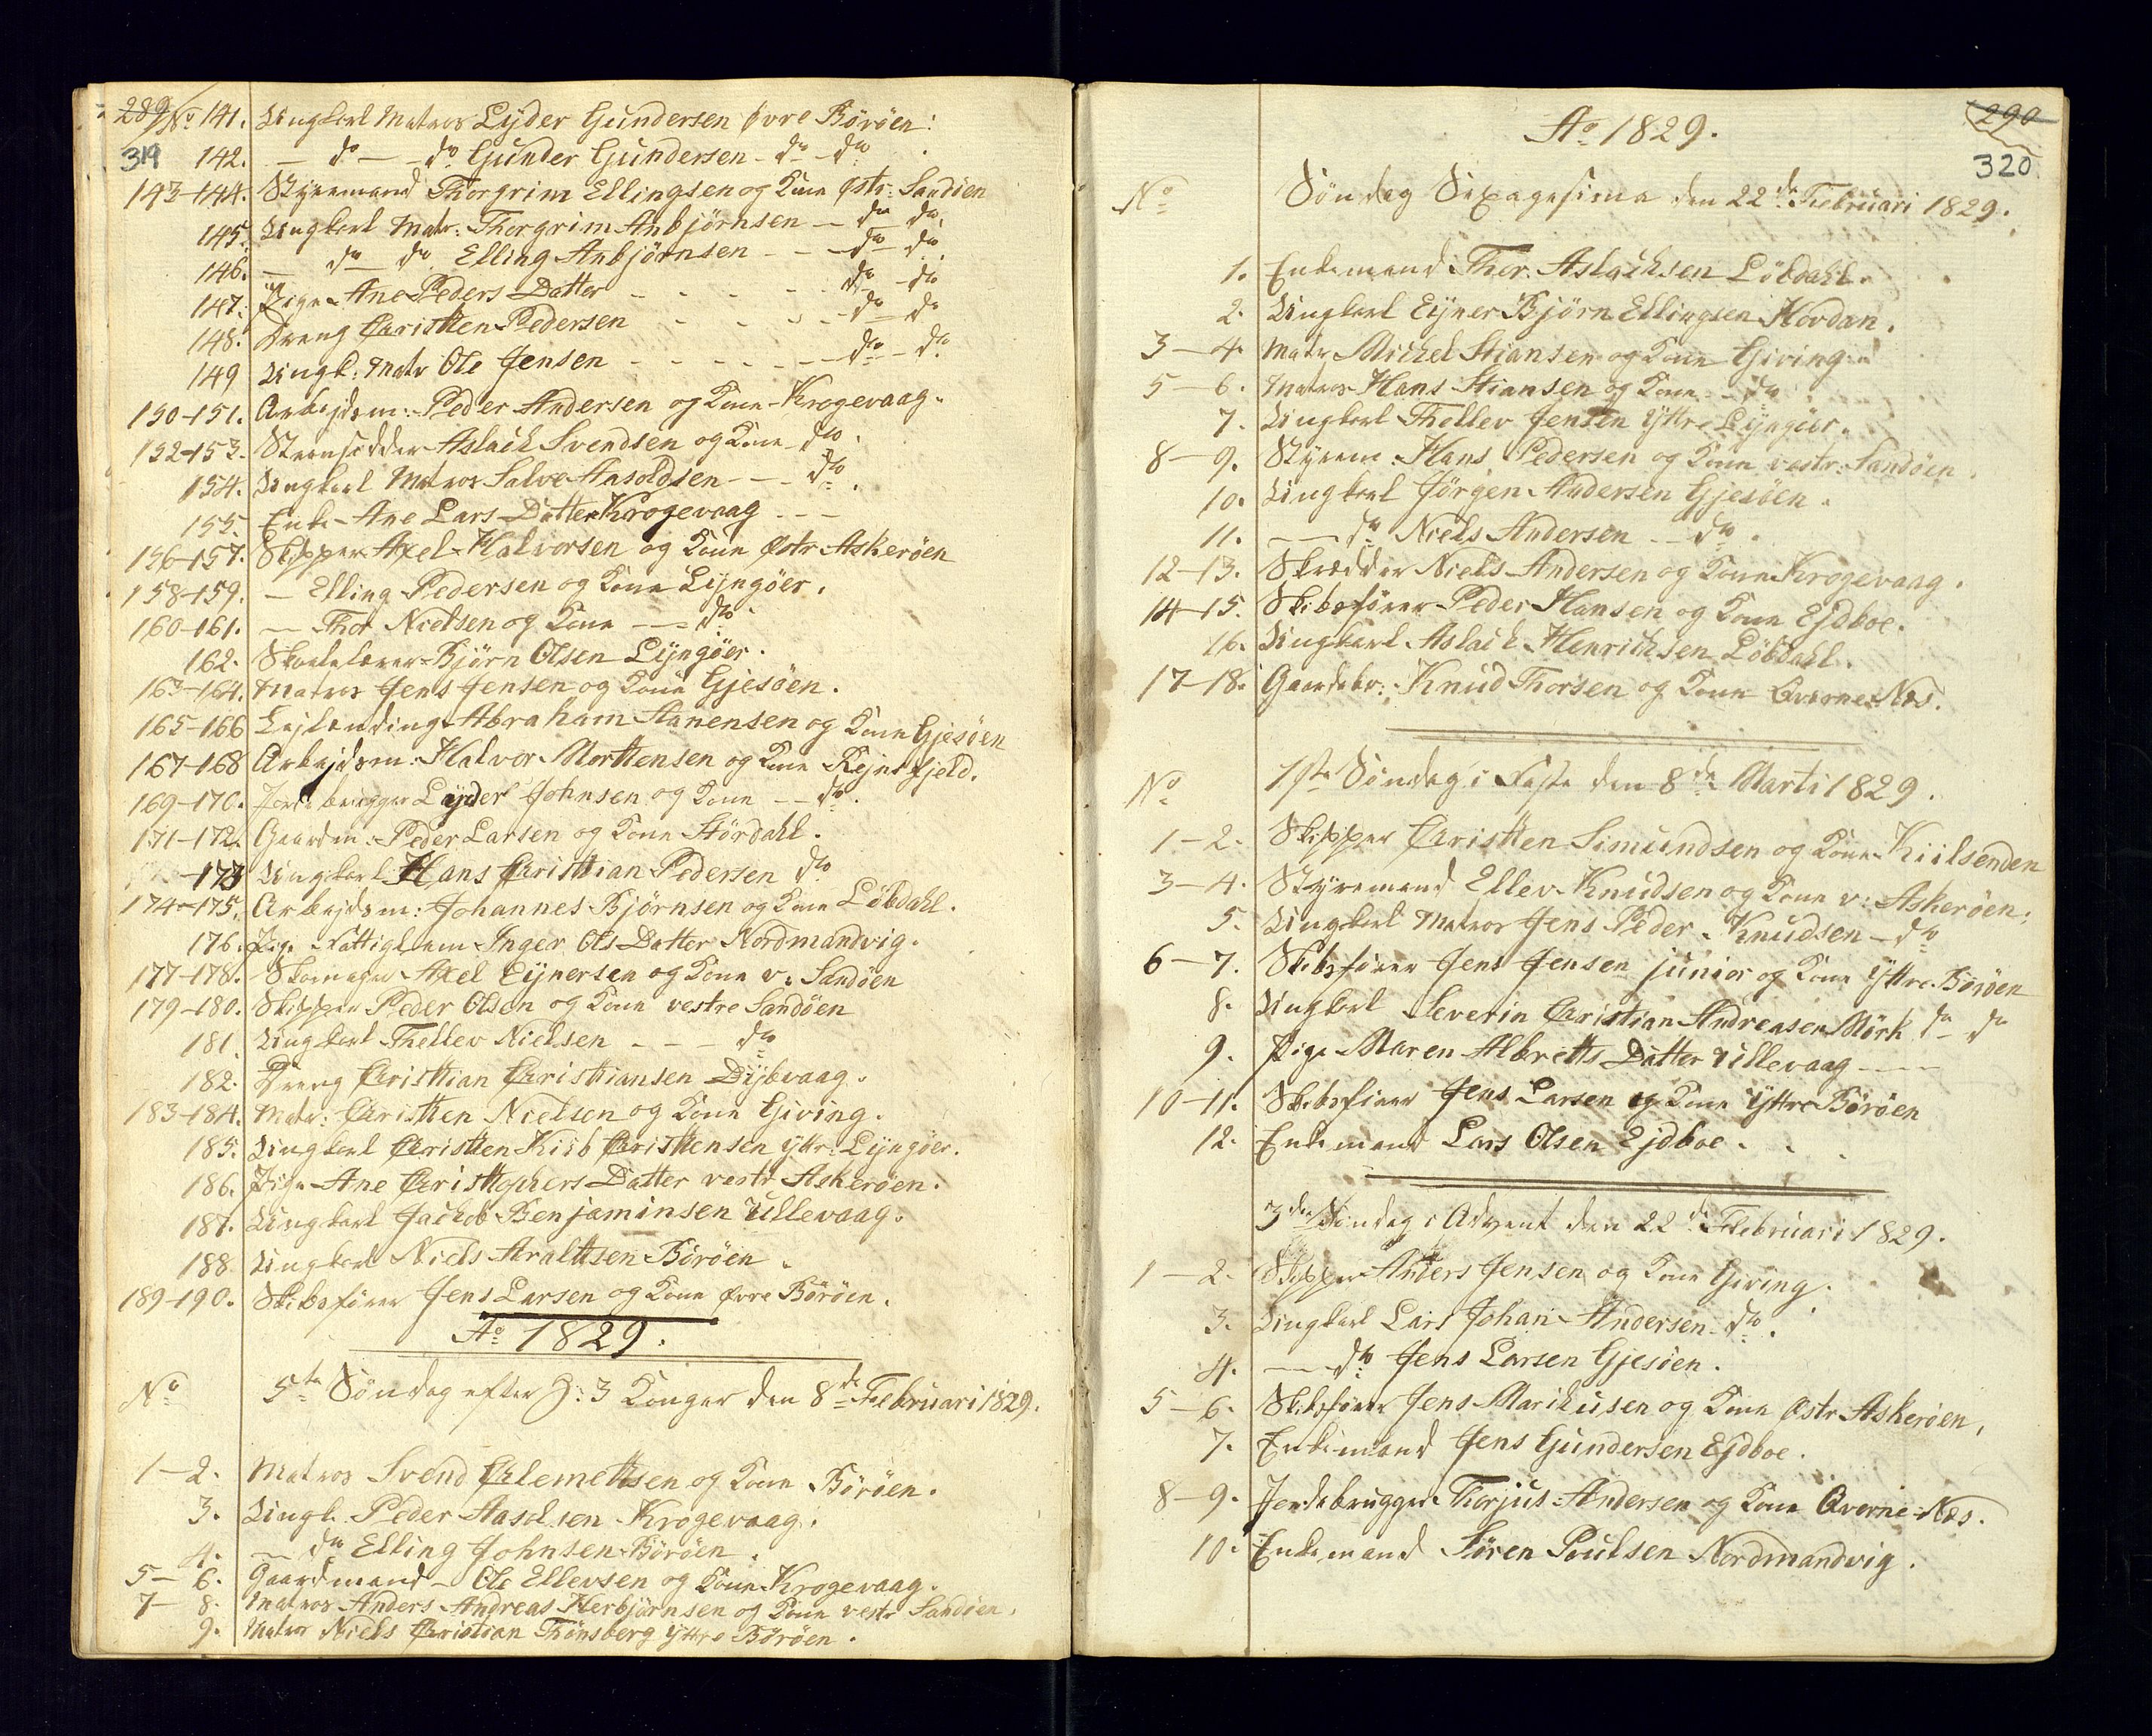 289 No 141. Ungkarl Matros Lyder Gundersen Øvre Böröen:
319 142. — do — do Gunder Gundersen - do - do
143-144. Styremand Thorgrim Ellingsen og Kone Østr: Sandöen
145. Ungkarl Matr: Thorgrim Anbjörnsen — do do
146. — do — do Elling Anbjörnsen - - - do - do
147. Pige Ane Peders Datter - - - - do - do
148. Dreng Christen Pedersen - - - - do - do
149 Ungk: Matr Ole Jensen - - - - - do - do
150-151. Arbejdsm: Peder Andersen og Kone Krogevaag.
152-153. Aslach Svendsen og Kone do.
154. Ungkarl Matros Salve Aasoldsen - - - do.
155. Enke Ane Lars Datter Krogevaag - - -
156-157. Skipper Axel Halvorsen og Kone Østr Askeröen
158-159. — Elling Pedersen og Kone Lyngöer.
160-161. — Thor Nielsen og Kone - - - do.
162. Skoelelærer Björn Olsen Lyngöer.
163-164. Matros Jens Jensen og Kone Gjesöen.
165-166 Lejlænding Abraham Aanensen og Kone Gjesöen
167-168 Arbejdsm: Halvor Morttensen og Kone Rejnsfjeld.
169-170. Jordbrugger Lyder Johnsen og Kone - - do.
171-172. Gaardm: Peder Larsen og Kone Stördahl.
-173 Ungkarl Hans Christian Pedersen do
174-175. Arbejdsm: Johannes Björnsen og Kone Löbdahl.
176. Pige Fattiglem Inger Ols Datter Nordmandvig.
177-178. Skomager Axel Eijnersen og Kone v: Sandöen
179-180. Skipper Peder Olsen og Kone vestre Sandöen
181. Ungkarl Thellev Nielsen - - - do
182. Dreng Christian Christiansen Dybvaag.
183-184. Matr: Christen Nielsen og Kone Giving.
185. Ungkarl Christen Kiib Christensen Yttr: Lyngöer.
186. Pige Ane Christophers Datter vestr Askeröen.
187. Ungkarl Jachob Benjaminsen Ullevaag.
188. Ungkarl Niels Araltsen Böröen.
189-190. Skibsförer Jens Larsen og Kone Øvre Böröen.
Ao 1829.
No 5te Söndag efter H: 3 Konger den 8de Februari 1829.
1-2. Matros Svend Clemettsen og Kone Böröen.
3. Ungk. Peder Aasolsen Krogevaag.
4. — do Elling Johnsen Böröen.
5-6. Gaardmand - Ole Ellevsen og Kone Krogevaag.
7-8. Matros Anders Andreas Herbjörnsen og Kone vestr Sandöen.
9. Matros Niels Christian Thönsberg Yttre Böröen.
290
320
Ao 1829.
No Söndag Sexagesima den 22de Februari 1829.
1. Enkemand Thor Aslachsen Löbdahl.
2. Ungkarl Eijner Björn Ellingsen Hovdan.
3-4. Matr Michel Stiansen og Kone Giving.
5-6. Matros Hans Stiansen og Kone - do.
7. Ungkarl Thellev Jensen Yttre Lyngöer.
8-9. Styrem: Hans Pedersen og Kone vestr: Sandöen.
10. Ungkarl Jörgen Andersen Gjesöen.
11. — do Niels Andersen - - do.
12-13. Skrædder Niels Andersen og Kone Krogevaag.
14-15. Skibsförer Peder Hansen og Kone Ejdboe.
16. Ungkarl Aslach Henrichsen Löbdahl.
17-18. Gaardbr: Knud Thorsen og Kone Qvarne Næs.
No 1ste Söndag i Faste den 8de Marti 1829.
1-2. Skipper Christen Simundsen og Kone Kiilsenden
3-4. Styremand Ellev Knudsen og Kone v: Askeröen:
5. Ungkarl Matros Jens Peder Knudsen - do
6-7. Skibsförer Jens Jensen junior og Kone Yttre Böröen
8. Ungkarl Severin Christian Andreasen Mörk do - do
9. Pige Maren Albretts Datter Ullevaag - - -
10-11. Skibsförer Jens Larsen og Kone Yttre Böröen
12. Enkemand Lars Olsen Ejdboe.
3die Söndag i Advent den 22de Februari 1829.
1-2. Skipper Anders Jensen og Kone Giving.
3. Ungkarl Lars Johan Andersen do.
4. — do Jens Larsen Gjesöen.
5-6. Skibsförer Jens Marikusen og Kone Østr Askeröen,
7. Enkemand Jens Gundersen Ejdboe.
8-9. Jordebrugger Thorjus Andersen og Kone Qvarne Næs.
10. Enkemand Sören Poulsen Nordmandvig.